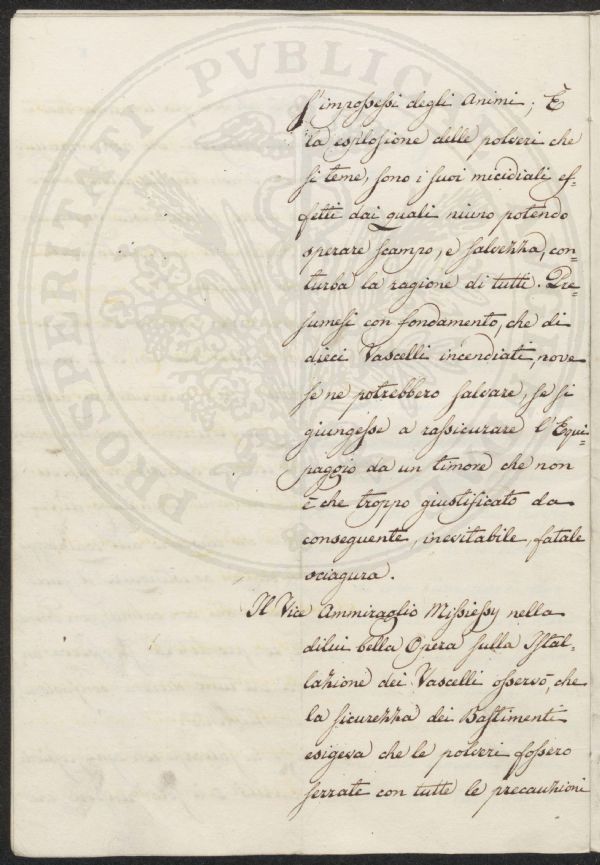 PROSPERITATI PVBLICAE
s'impossessi degli Animi; E
la esplosione delle polveri che
si teme, sono i suoi micidiali ef=
fetti dai quali niuno potendo
sperare scampo, e salvezza, con=
turba la ragione di tutti. Pre=
sumesi con fondamento, che di
dieci Vascelli incendiati, nove
se ne potrebbero salvare, se si
giungesse a rassicurare l'Equi=
paggio da un timore che non
è che troppo giustificato da
conseguente, inevitabile, fatale
sciagura.
Il Vice Ammiraglio Missiessy nella
dilui bella Opera sulla Istal=
lazione dei Vascelli osservò, che
la sicurezza dei Bastimenti
esigeva che le polveri fossero
serrate con tutte le precauzioni